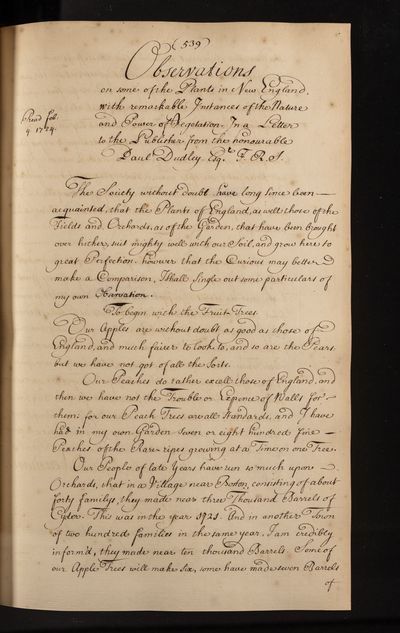 (539)
Observations
on some of the Plants in New England,
with remarkable Instances of the Nature
Read feb.
and Power of Vegetation. In a Letter
9 1724.
to the Publisher from the honourable
Paul Dudley Esqr. F. R. S.
The Society without doubt have long since been
acquainted, that the Plants of England, as well those of the
Fields and Orchards, as of the Garden, that have been brought
over hither, suit mighty well with our Soil, and grow here to
great Perfection. however that the Curious may better
make a Comparison, I shall single out some particulars of
my own Observation.
To begin with the Fruit Trees
Our Apples are without doubt as good as those of
England, and much fairer to look to, and so are the Pears,
but we have not got of all the Sorts.
Our Peaches do rather excell those of England, and
then we have not the Trouble or Expence of Walls for
them; for our Peach Trees are all Standards, and I have
had in my own Garden seven or eight hundred fine
Peaches of the Rare ripes growing at a Time on one Tree.
Our People of late Years have run so much upon
Orchards, that in a Village near Boston consisting of about
forty familys, they made near three Thousand Barrels of
Cyder. This was in the year 1721. And in another Town
of two hundred families in the same year, I am credibly
inform'd, they made near ten thousand Barrels. Some of
our Apple Trees will make six, some have made seven Barrels
of